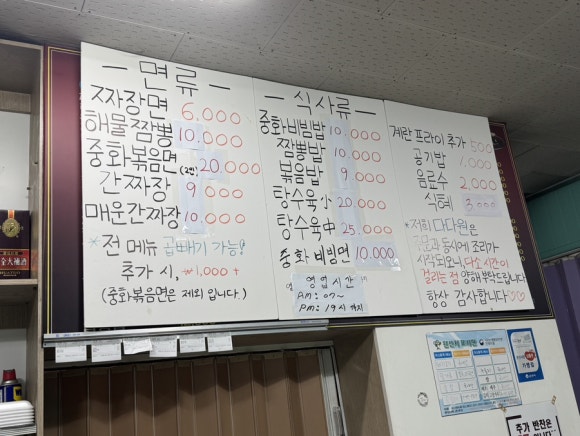 - 면류 -
짜장면 6,000
해물짬뽕 10,000
중화볶음면(2인) 20,000
간짜장 9,000
매운간짜장 10,000
*전 메뉴 곱빼기 가능!
추가 시, ₩1,000 +
(중화볶음면은 제외 입니다.)
- 식사류 -
중화비빔밥 10,000
짬뽕밥 10,000
볶음밥 9,000
탕수육 小 20,000
탕수육 中 25,000
중화 비빔면 10,000
영업시간
AM: 07~
PM: 19시 까지
계란 프라이 추가 500
공기밥 1,000
음료수 2,000
식혜 3,000
*저희 다다원은
주문과 동시에 조리가
시작되오니, 다소 시간이
걸리는 점 양해 부탁드립니다
항상 감사합니다♡♡
추가 반찬은